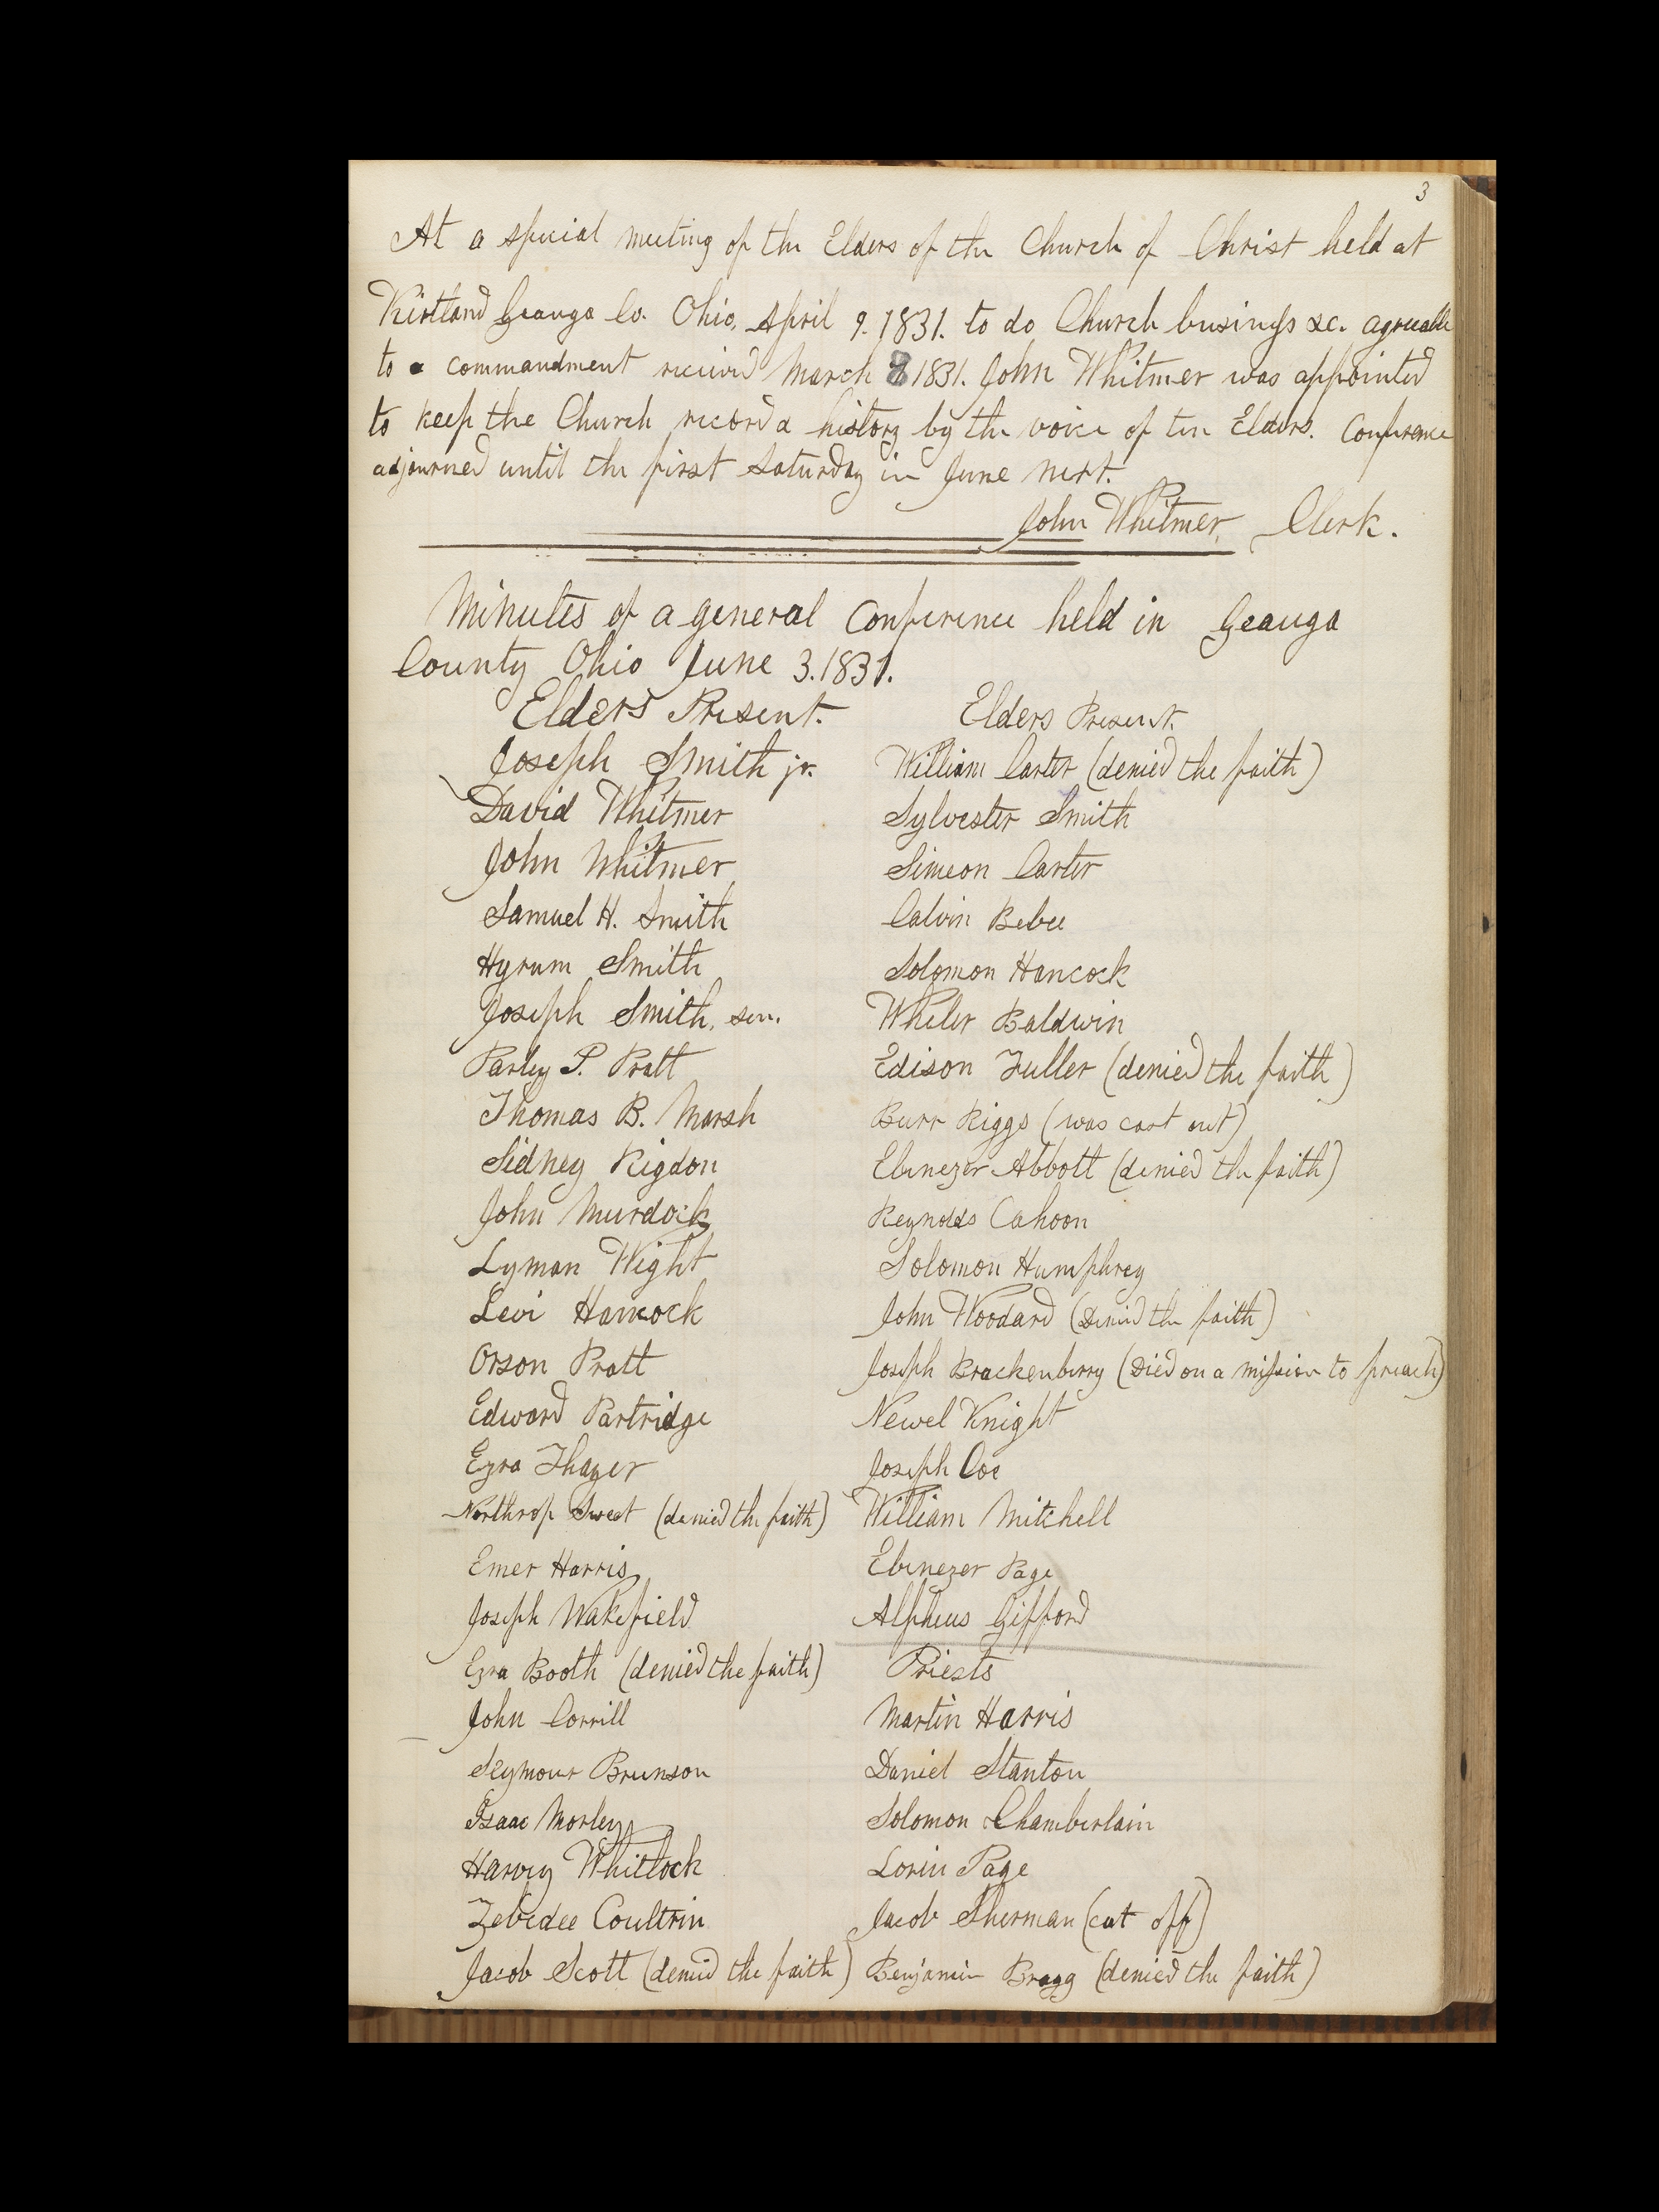 3
At a special meeting of the Elders of the Church of Christ held at
Kirtland Geauga Co. Ohio, April 9. 1831. to do Church business &c. agreeable
to a commandment received March 8 1831. John Whitmer was appointed
to keep the Church record & history by the voice of ten Elders. Conference
adjourned until the first Saturday in June next.
John Whitmer, Clerk.
Minutes of a general Conference held in Geauga
County Ohio June 3. 1831.
Elders Present.
Joseph Smith jr.
David Whitmer
John Whitmer
Samuel H. Smith
Hyrum Smith
Joseph Smith, sen.
Parley P. Pratt
Thomas B. Marsh
Sidney Rigdon
John Murdock
Lyman Wight
Levi Hancock
Orson Pratt
Edward Partridge
Ezra Thayer
Northrop Sweet (denied the faith)
Emer Harris
Joseph Wakefield
Ezra Booth (denied the faith)
John Corrill
Seymour Brunson
Isaac Morley
Harvey Whitlock
Zebedee Coultrin
Jacob Scott (denied the faith)
Elders Present.
William Carter (denied the faith)
Sylvester Smith
Simeon Carter
Calvin Bebee
Solomon Hancock
Wheler Baldwin
Edison Fuller (denied the faith)
Burr Riggs (was cast out)
Ebenezer Abbott (denied the faith)
Reynolds Cahoon
Solomon Humphrey
John Woodard (Denied the faith)
Joseph Brackenberry (Died on a mission to preach)
Newel Knight
Joseph Coe
William Mitchell
Ebenezer Page
Alpheus Gifford
Priests
Martin Harris
Daniel Stanton
Solomon Chamberlain
Lorin Page
Jacob Sherman (cut off)
Benjamin Bragg (denied the faith)